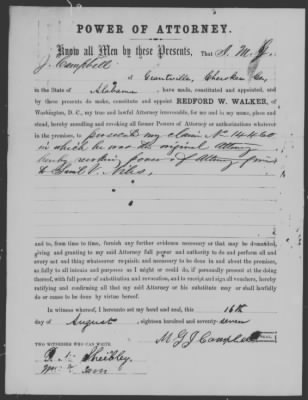 POWER OF ATTORNEY.
Know all Men by these Presents, That I, M. G.
J. Campbell
of Crantville, Cherokee Co,
in the State of Alabama have made, constituted and appointed, and
by these presents do make, constitute and appoint REDFORD W. WALKER, of
Washington, D. C., my true and lawful Attorney irrevocable, for me and in my name, place and
stead, hereby annulling and revoking all former Powers of Attorney or authorizations whatever
in the premises, to prosecute my claim No 14460
in which he was the original Attorney
hereby revoking power of Attorney given
to Saml V. Niles.
and to, from time to time, furnish any further evidence necessary or that may be demanded,
giving and granting to my said Attorney full power and authority to do and perform all and
every act and thing whatsoever requisite and necessary to be done in and about the premises,
as fully to all intents and purposes as I might or could do, if personally present at the doing
thereof, with full power of substitution and revocation, and to receipt and sign all vouchers, hereby
ratifying and confirming all that my said Attorney or his substitute may or shall lawfully
do or cause to be done by virtue hereof.
In witness whereof, I hereunto set my hand and seal, this 16th
day of August, eighteen hundred and seventy-seven
M G J Campbell
TWO WITNESSES WHO CAN WRITE.
Shibley